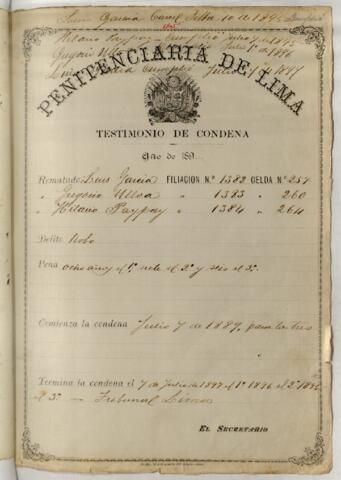 Luis Garcia
Hilario Paypay cumplió Julio 7 de 1895
Gregorio Ulloa Julio 7 1896
Luis Garcia Cumplió Julio 7 1897
PENITENCIARIA DE LIMA
TESTIMONIO DE CONDENA
Año de 189
Rematado Luis Garcia FILIACION N.º 1382 CELDA N.º 257
" Gregorio Ulloa " 1383 " 260
" Hilario Paypay " 1384 " 264
Delito Robo
Pena ocho años el 1º, siete el 2º y seis el 3º.
Comienza la condena Julio 7 de 1889, para los tres
Termina la condena el 7 de Julio de 1897 el 1º 1896 el 2º 1895
el 3º — Tribunal Lima
EL SECRETARIO